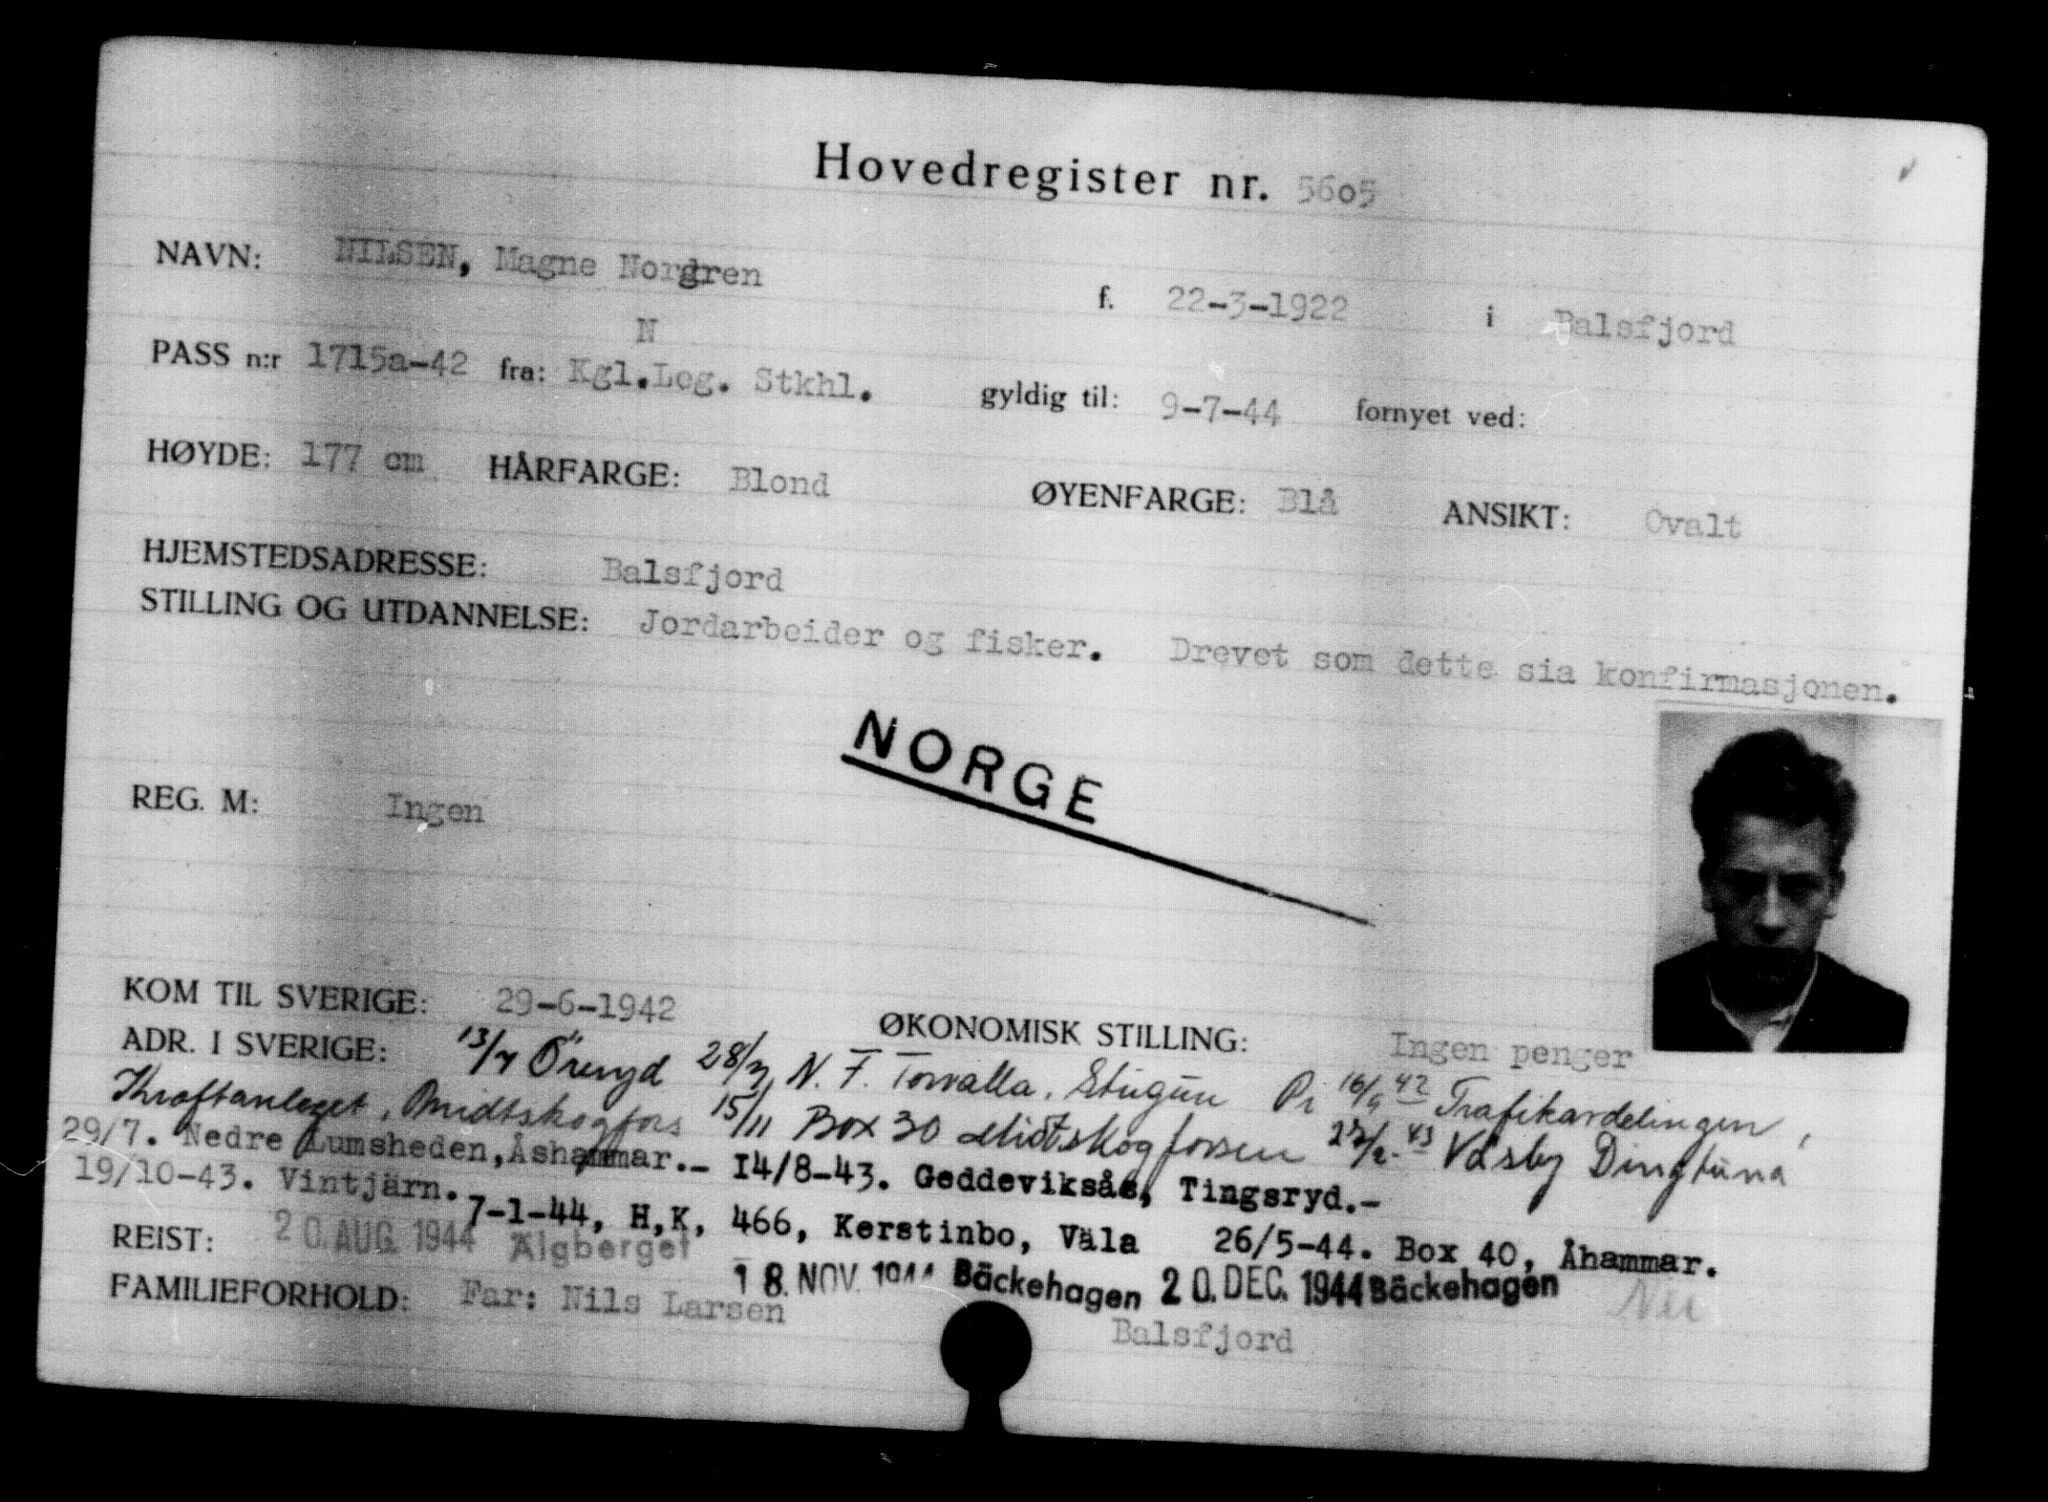 Hovedregister nr. 5605
NAVN: NILSEN, Magne Norgren f. 22-3-1922 i Balsfjord
N
PASS n:r 1715a-42 fra: Kgl.Leg. Stkhl. gyldig til: 9-7-44 fornyet ved:
HØYDE: 177 cm HÅRFARGE: Blond ØYENFARGE: Blå ANSIKT: Ovalt
HJEMSTEDSADRESSE: Balsfjord
STILLING OG UTDANNELSE: Jordarbeider og fisker. Drevet som dette sia konfirmasjonen.
NORGE
REG. M: Ingen
KOM TIL SVERIGE: 29-6-1942 ØKONOMISK STILLING: Ingen penger
ADR. I SVERIGE: 13/7 Öreryd 28/7 N. F. Torvalla, Stugun 16/9 42 Trafikardelingen,
Kraftanleget, Midtskogfors 15/11 Box 30 Midtskogforsen 43 Väsby Dingtuna
29/7. Nedre Lumsheden, Åshammar.- 14/8-43. Geddeviksås, Tingsryd.-
19/10-43. Vintjärn. 7-1-44, H,K, 466, Kerstinbo, Väla 26/5-44. Box 40, Åhammar.
REIST: 20. AUG. 1944 Älgberget 18. NOV. 1944 Bäckehagen 20. DEC. 1944 Bäckehagen
FAMILIEFORHOLD: Far: Nils Larsen Balsfjord